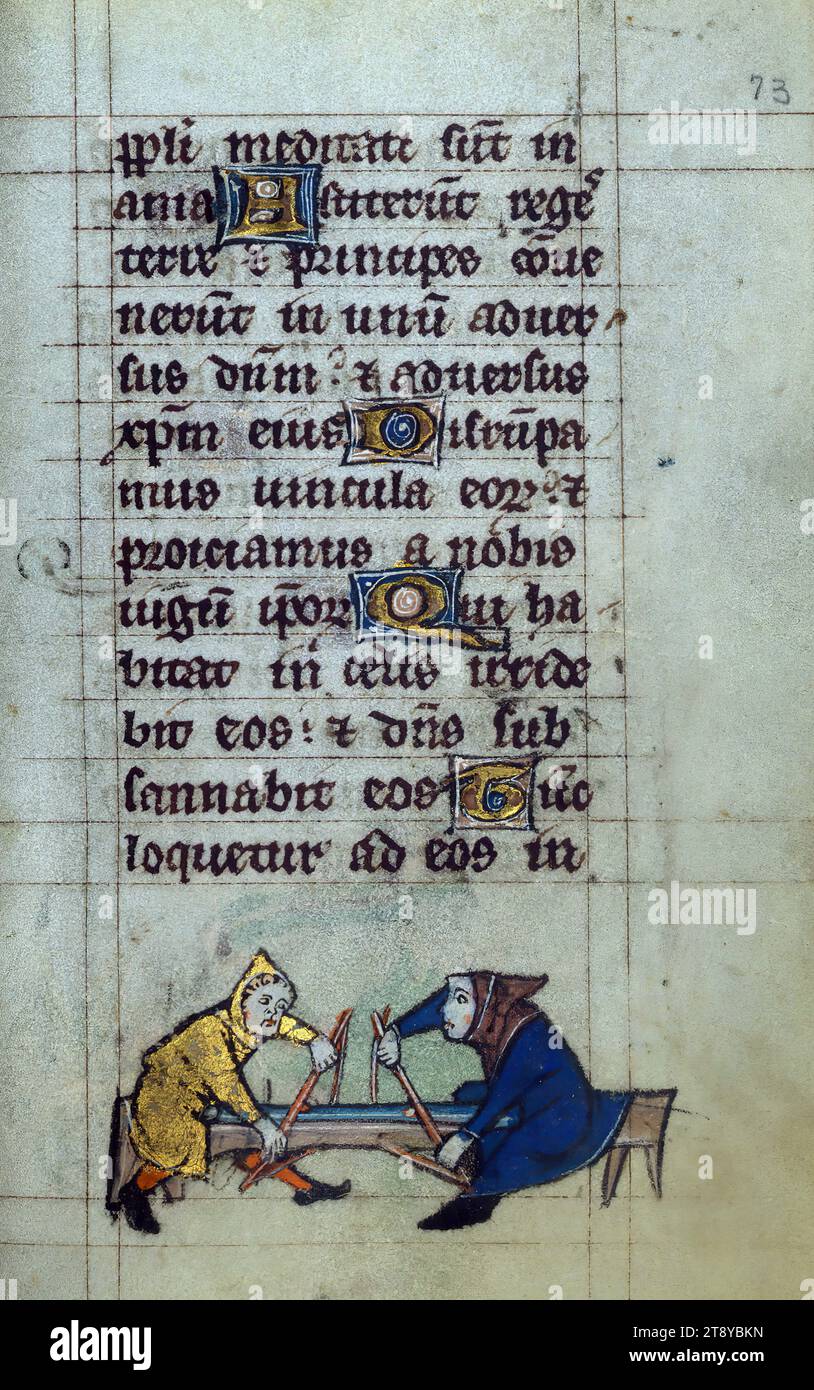 73
ppli meditati sūt in
ania Astiterūt rege^s
terre ⁊ principes cōue
nerūt in unū aduer
sus dn̄m? ⁊ aduersus
xp̄m eius Disrūpa
mus uincula eoꝝ? ⁊
proiciamus a nobis
iugū ip̄oꝝ Qui ha
bitat in celis irride
bit eos? ⁊ dn̄s sub
sannabit eos Tūc
loquetur ad eos in
alamy
alamy
Image ID: 2T8YBKN
www.alamy.com